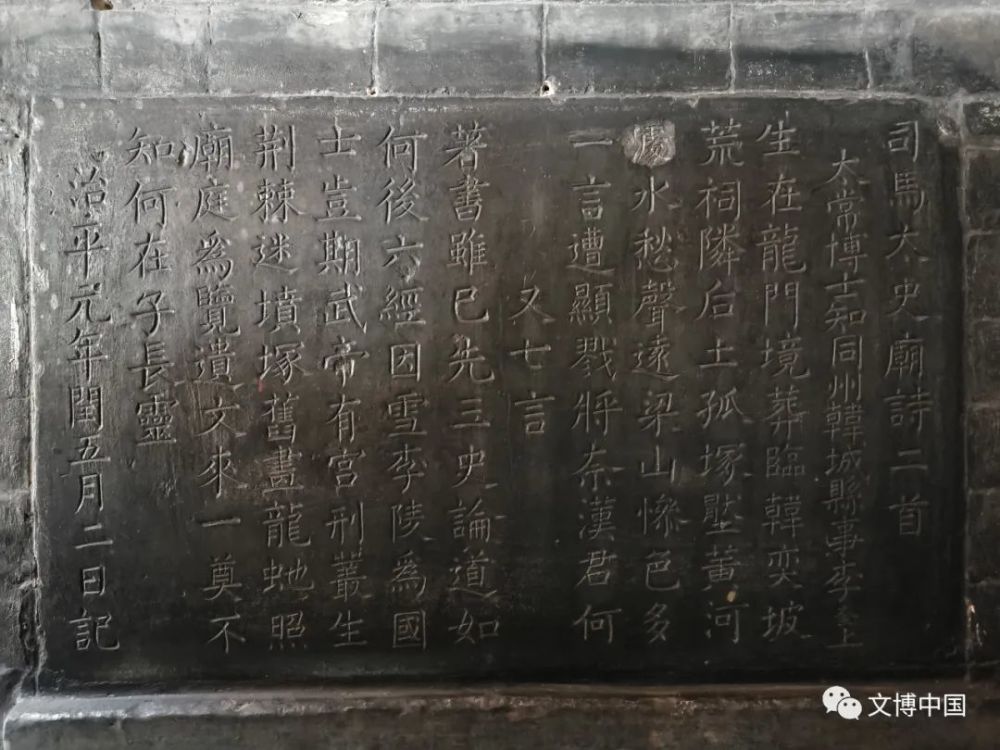 司馬太史廟詩二首
太常博士知同州韓城縣事李奎上
生在龍門境葬臨韓奕坡
荒祠隣后土孤塚壓黃河
水愁聲遠梁山慘色多
一言遭顯戮將奈漢君何
又七言
著書雖已先三史論道如
何後六經因雪李陵為國
士豈期武帝有宮刑叢生
荆棘迷墳塚舊畫龍虵照
廟庭為覽遺文來一奠不
知何在子長靈
治平元年閏五月二日記
文博中国